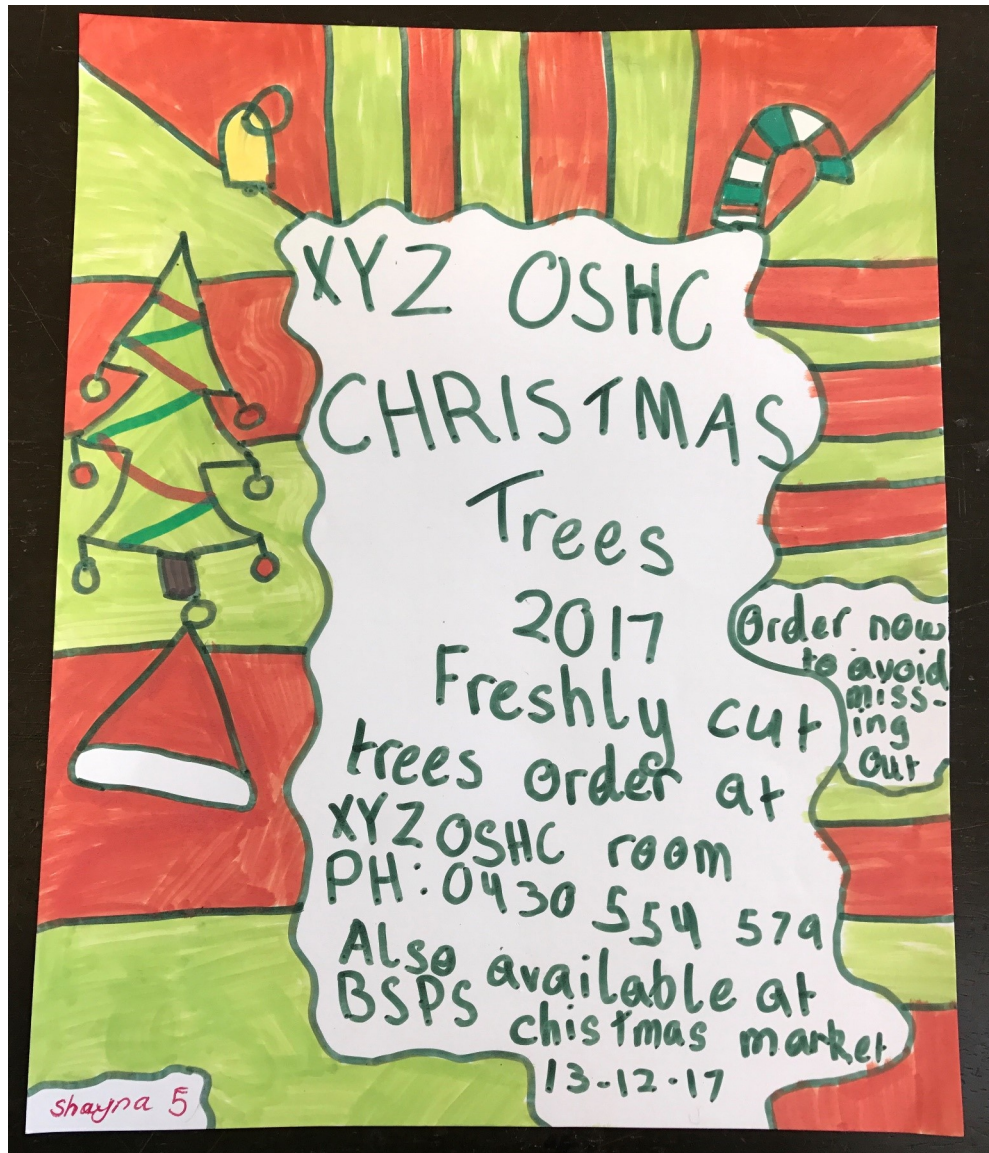 XYZ OSHC
CHRISTMAS
Trees
2017
Freshly cut
trees order at
XYZ OSHC room
PH: 0430 554 579
Also available at
BSPS chistmas market
13-12-17
Order now
to avoid
miss-
ing
out
Shayna 5